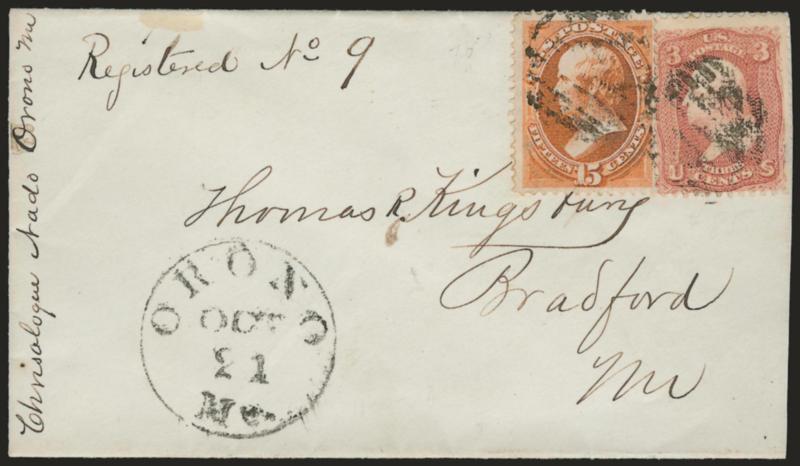 Chrisologue Nado Orono Me
Registered No 9
U.S. POSTAGE
FIFTEEN 15 CENTS
3 U.S. 3
POSTAGE
U CENTS S
Thomas R. Kingsbury
Bradford
Me
ORONO
OCT
21
Me.